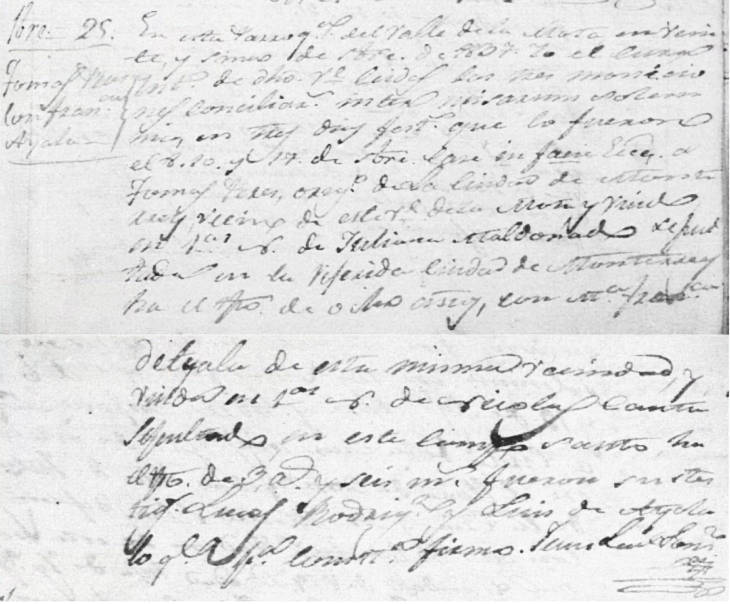 Sbre. 25.
Tomas Peres
con Fran.ca
Ayala
En esta Parroq.l del Valle de la Mota en vein
te, y sinco de Sbre. de 1837. Yo el Cura
Int.o de dho. Vê leidas las tres monicio
nes conciliar.s inter misarum solem
nia, en tres dias fest.s que lo fueron
el 8. 10. y 17. de Sbre. Casé in facie Ecc.e a
Tomas Peres, orig.o de la Ciudad de Monte
rrey, vecino de este Ve. de la Mota y viudo
en 1.as n. de Juliana Maldonado sepul
tada en la referida Ciudad de Monterrey
ha el tpo. de ocho años, con M.a Fran.ca
de Ayala de esta misma vecindad, y
viuda en 1.as n. de Nicolas Cantu
sepultado en este Campo santo, ha
el tpo. de 3 a.s y seis m. fueron sus tes
tig.s Lucas Rodrig.s y Luis de Ayala
lo q.e p.a const.a firmo.